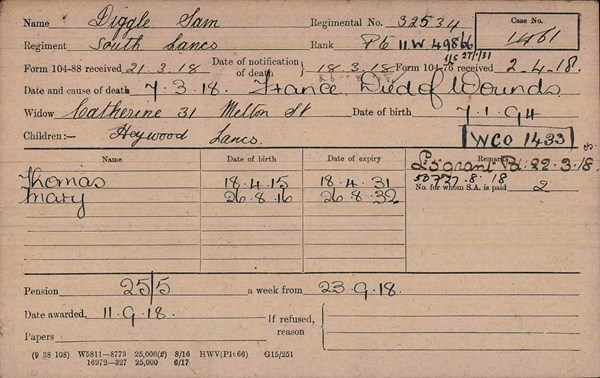 Name Diggle Sam Regimental No. 32534 Case No.
Regiment South Lancs Rank Pte 11W 4986 1461
Form 104-88 received 21.3.18. Date of notification of death 18.3.18. Form 104-76 received 2.4.18.
Date and cause of death 7.3.18. France Died of Wounds
Widow Catherine 31 Melton St Date of birth 7.1.94
Children:— Heywood Lancs. WCO 1433
Name Date of birth Date of expiry Remarks
£5 grant Pd. 22.3.18.
Thomas 18.4.15 18.4.31 No. for whom S.A. is paid 2
Mary 26.8.16 26.8.32
Pension 25/5 a week from 23.9.18.
Date awarded 11.9.18. If refused, reason
Papers
(9 38 108) W5811—8773 25,000(2) 8/16 HWV(P1566) G15/251
16972—327 25,000 6/17